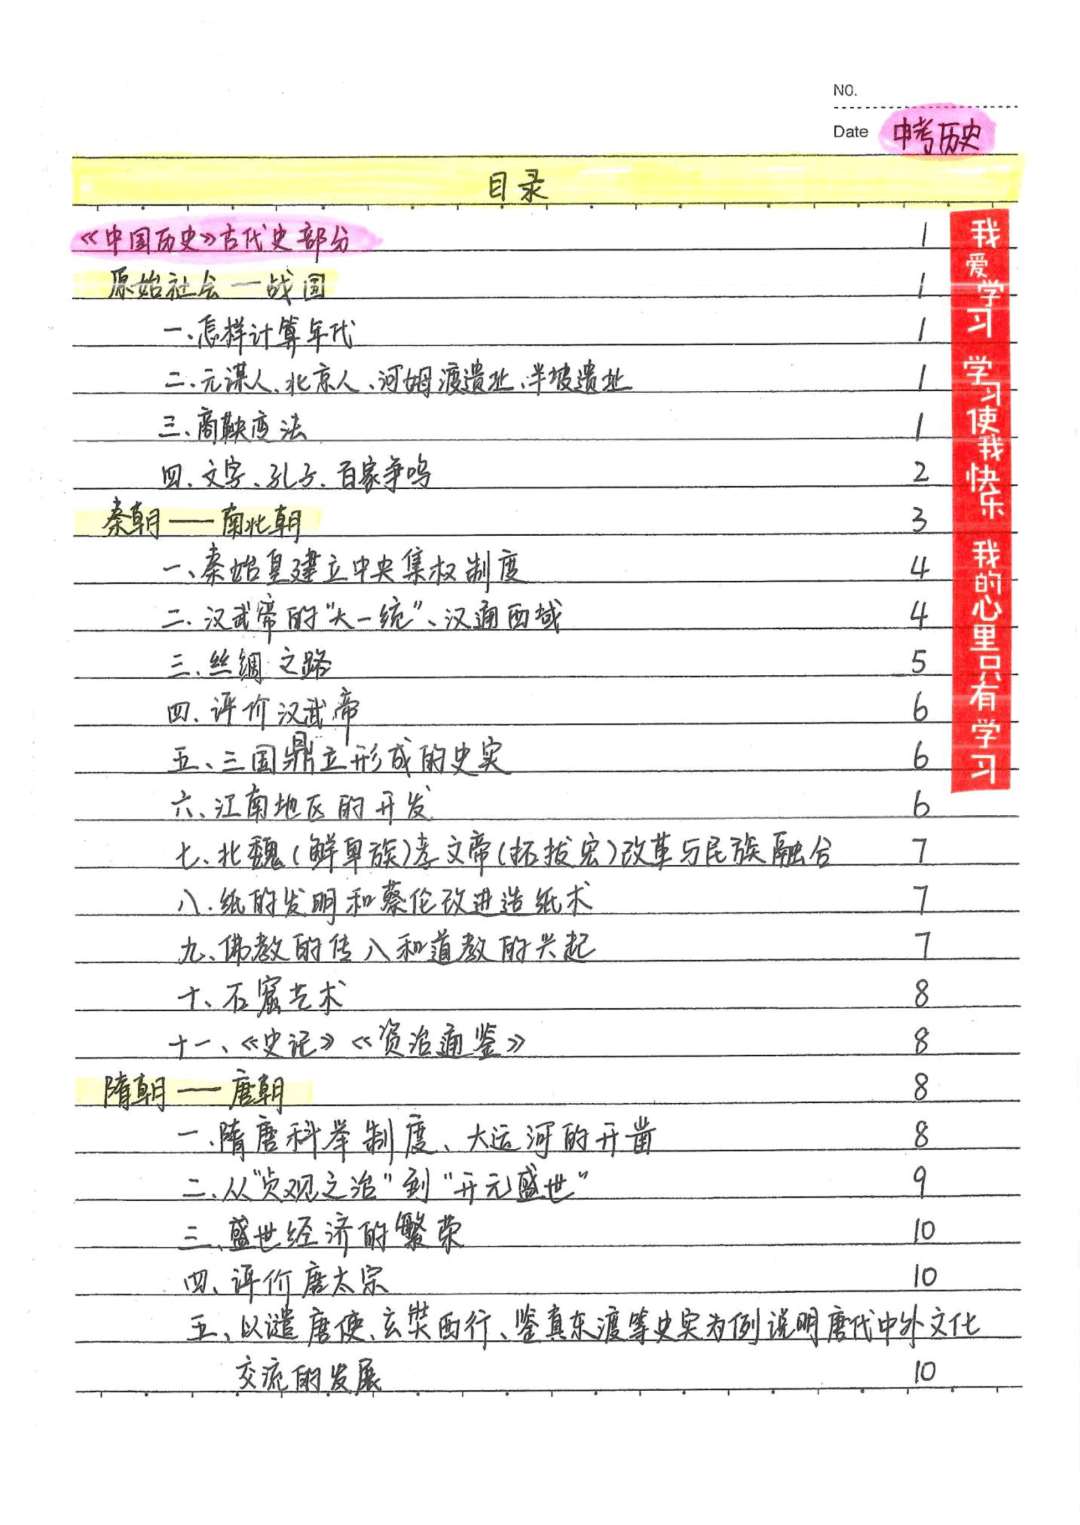 NO.
Date 中考历史
目录
《中国历史》古代史部分 1
原始社会一战国 1
一、怎样计算年代 1
二、元谋人、北京人、河姆渡遗址、半坡遗址 1
三、商鞅变法 1
四、文字、孔子、百家争鸣 2
秦朝——南北朝 3
一、秦始皇建立中央集权制度 4
二、汉武帝的“大一统”、汉通西域 4
三、丝绸之路 5
四、评价汉武帝 6
五、三国鼎立形成的史实 6
六、江南地区的开发 6
七、北魏(鲜卑族)孝文帝(拓拔宏)改革与民族融合 7
八、纸的发明和蔡伦改进造纸术 7
九、佛教的传入和道教的兴起 7
十、石窟艺术 8
十一、《史记》《资治通鉴》 8
隋朝——唐朝 8
一、隋唐科举制度、大运河的开凿 8
二、从“贞观之治”到“开元盛世” 9
三、盛世经济的繁荣 10
四、评价唐太宗 10
五、以遣唐使、玄奘西行、鉴真东渡等史实为例说明唐代中外文化
交流的发展 10
我爱学习 学习使我快乐 我的心里只有学习